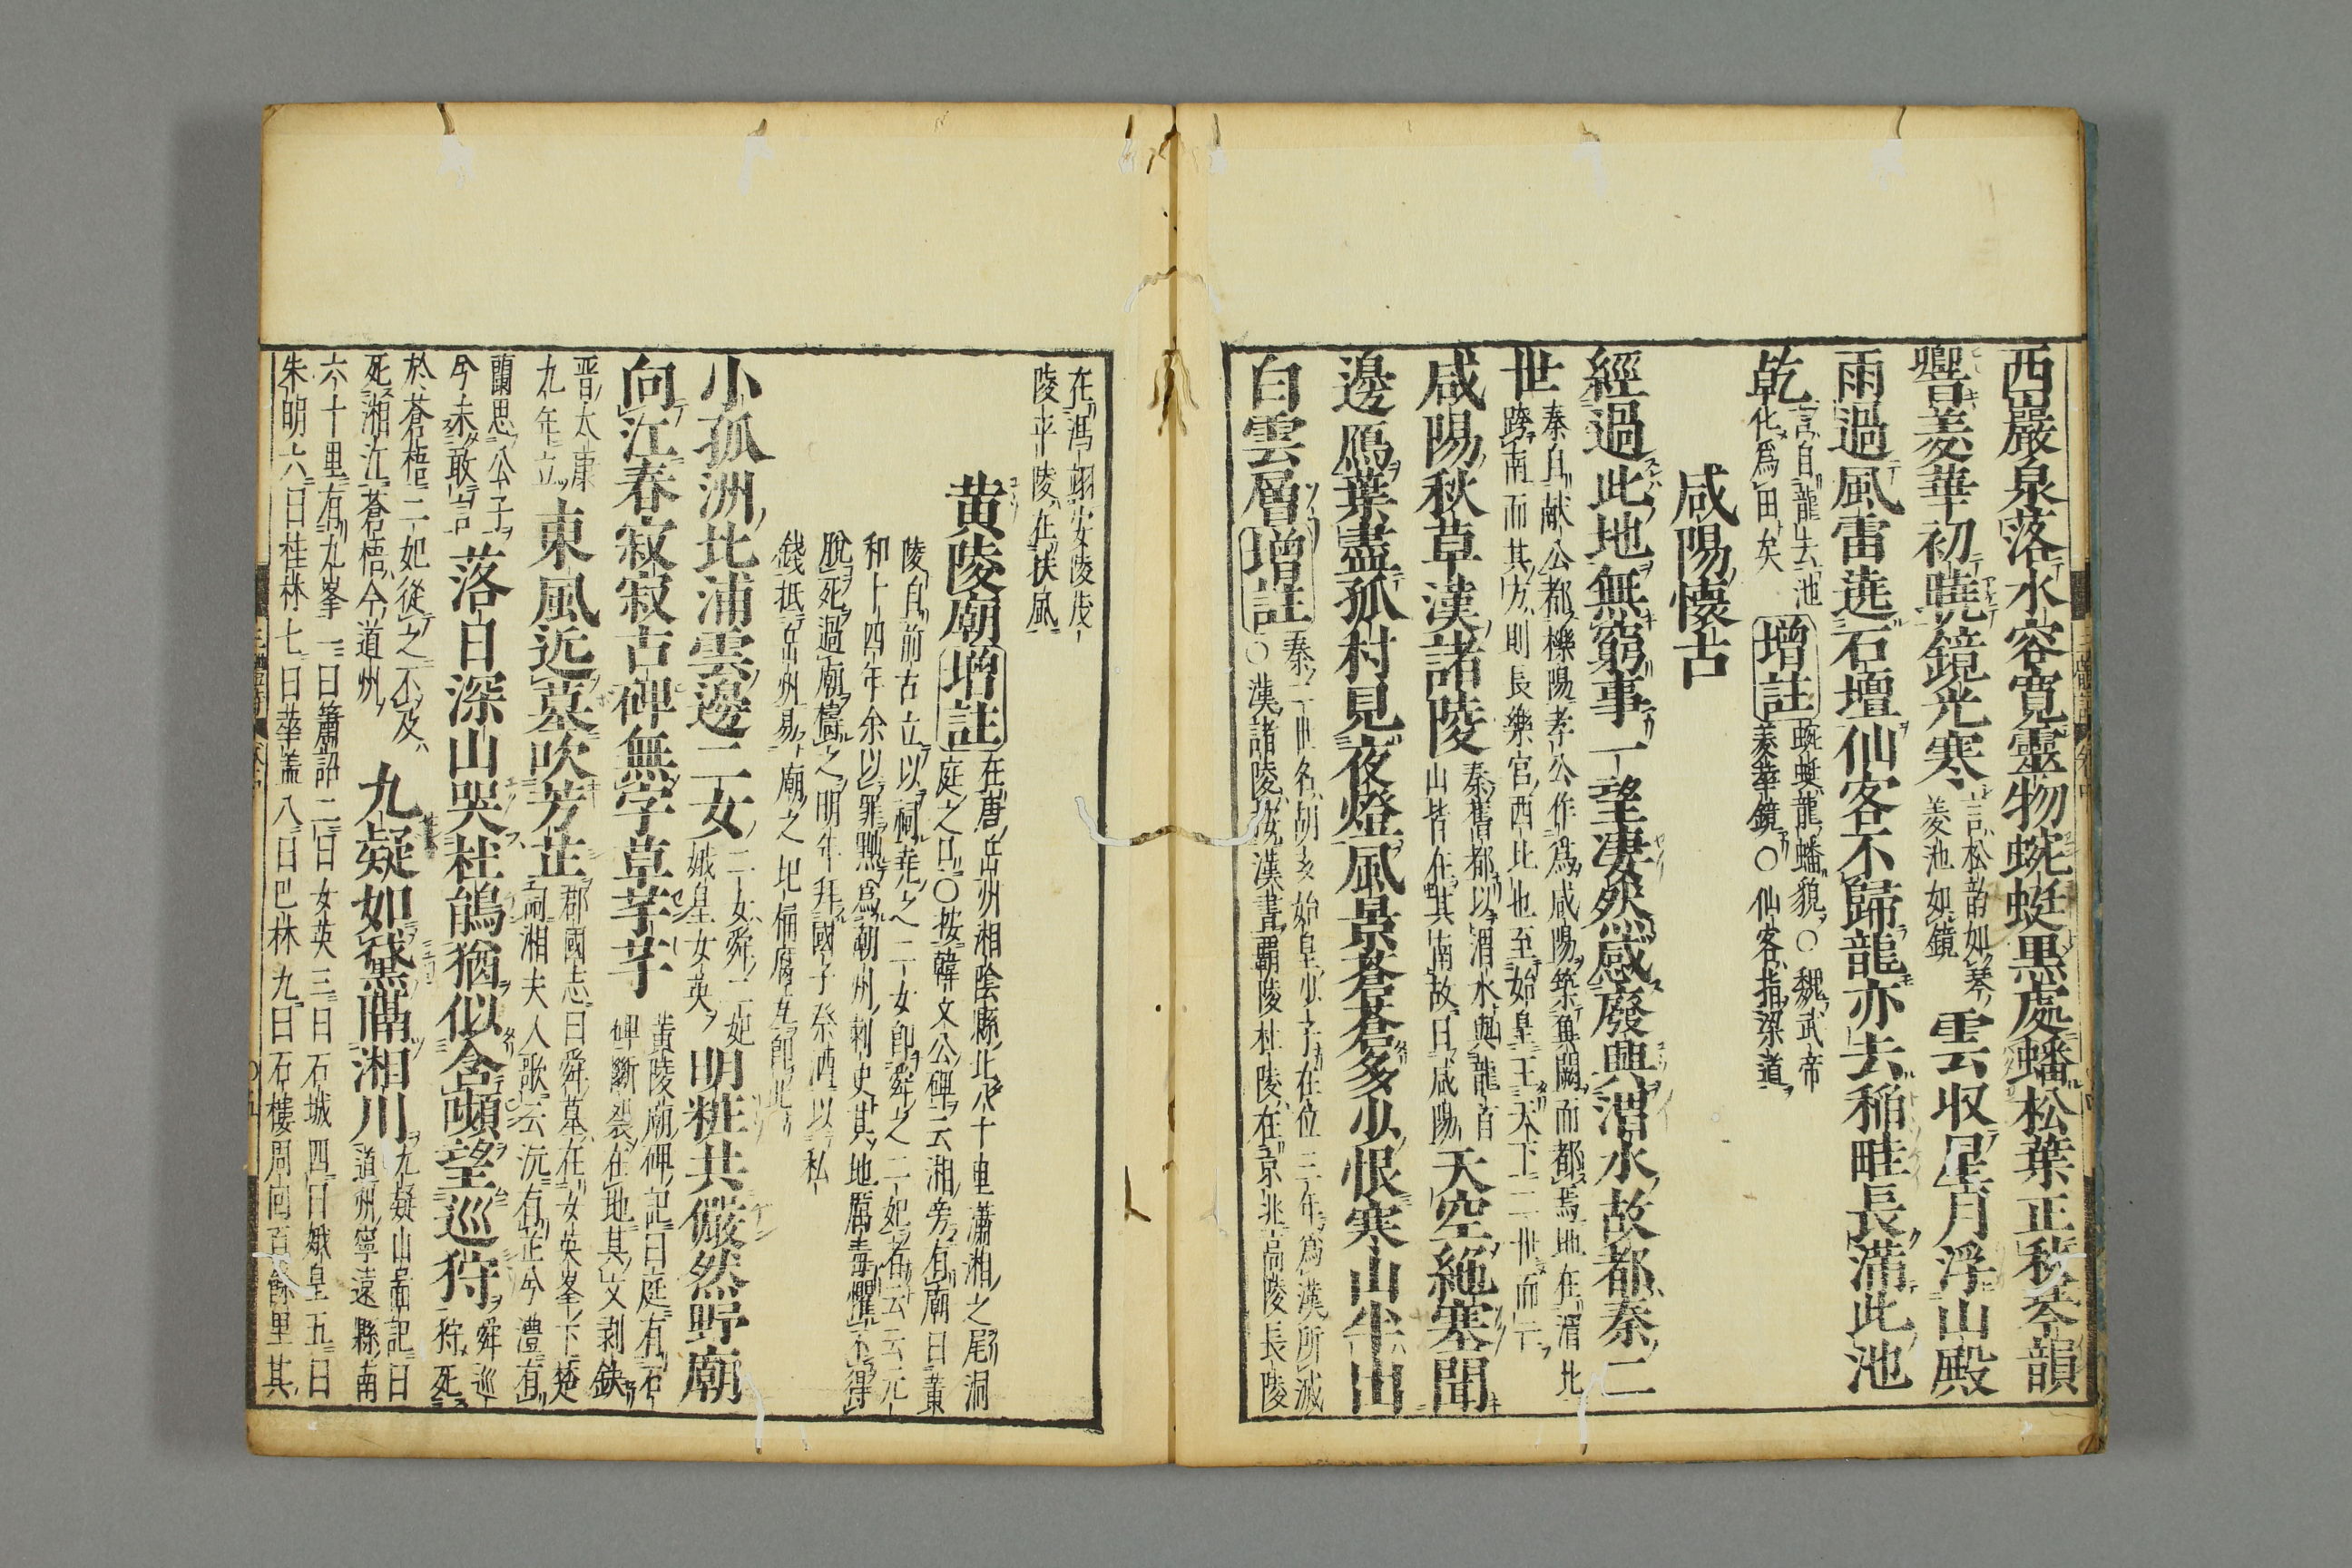 西巖泉落水容寛靈物蜿蜒黒處蟠松葉正秋琴韻
響菱華初曉鏡光寒
言松韵如琴
菱池如鏡
雲収星月浮山殿
雨過風雷遶石壇仙客不歸龍亦去稲畦長満此池
乾
言自龍去池
化爲田矣
増註
蜿蜒龍蟠貌○魏武帝
菱華鏡○仙客指梁道
咸陽懐古
經過此地無窮事一望凄然感廢興渭水故都秦二
世
秦自献公都櫟陽孝公作爲咸陽築冀闕而都焉地在渭北
跨南而其方則長樂宮西北也至始皇王天下二世而亡
咸陽秋草漢諸陵
秦舊都以渭水與龍首
山皆在其南故曰咸陽
天空絶塞聞
邊鴈葉盡孤村見夜燈風景蒼蒼多少恨寒山半出
白雲層
増註
秦二世名胡亥始皇少子在位三年爲漢所滅
○漢諸陵按漢書覇陵杜陵在京兆高陵長陵
在馮翊安陵茂
陵平陵在扶風
黄陵廟
増註
在唐岳州湘陰縣北八十里瀟湘之尾洞
庭之口○按韓文公碑云湘旁有廟曰黄
陵自前古立以祠堯之二女即舜之二妃者云云元
和十四年余以罪黜爲潮州刺史其地厲毒懼不得
脱死過廟禱之明年拜國子祭酒以私
錢抵岳州易廟之圮桷腐瓦即此
小孤洲北浦雲邊二女
二女舜二妃
娥皇女英
明粧共儼然野廟
向江春寂寂古碑無字草芊芊
黄陵廟碑記曰庭有石
碑斷裂在地其文剥缺
晋太康
九年立
東風近墓吹芳芷
郡國志曰舜墓在女英峯下楚
詞湘夫人歌云沅有芷兮澧有
蘭思公子
兮未敢言
落日深山哭杜鵑猶似含嚬望巡狩
舜巡
狩死
於蒼梧二妃從之不及
死湘江蒼梧今道州
九疑如黛隔湘川
九疑山啚記曰
道州寧遠縣南
六十里有九峯一曰簫韶二曰女英三曰石城四曰娥皇五曰
朱明六曰桂林七曰華盖八曰巴林九曰石樓周囘百餘里其